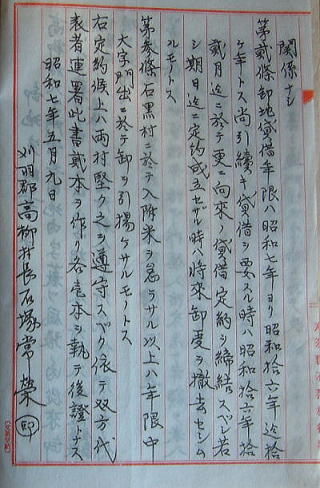 関係ナシ
第貳條卸地貸借年限ハ昭和七年ヨリ昭和拾六年迄拾
ケ年トス尚引續キ貸借ヲ要スル時ハ昭和拾六年拾
貳月迄ニ於テ更ニ向來ノ貸借定約ヲ締結スベシ若
シ期日迄ニ定約成立セザル時ハ將來卸受ヲ撤去セシム
ルモノトス
第参條石黒村ニ於テ入附米ヲ怠ラサル以上ハ年限中
大字門出ニ於テ卸ヲ引揚ケサルモノトス
右定約候上ハ両村堅ク之ヲ遵守スベク依テ双方代
表者連署此書貳本ヲ作リ各壱本ヲ執テ後證トナス
昭和七年五月九日
刈羽郡高柳村長石塚常榮 印